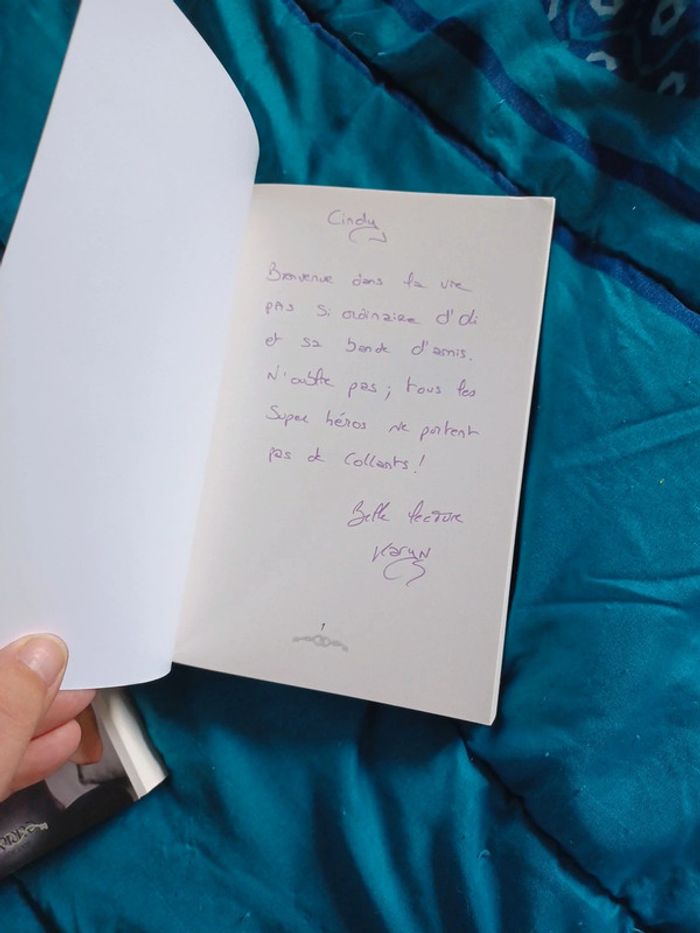 Cindy
Bienvenue dans la vie
pas si ordinaire d'Oli
et sa bande d'amis.
N'oublie pas ; tous les
Super héros ne portent
pas de Collants !
Belle lecture
Karyn
1